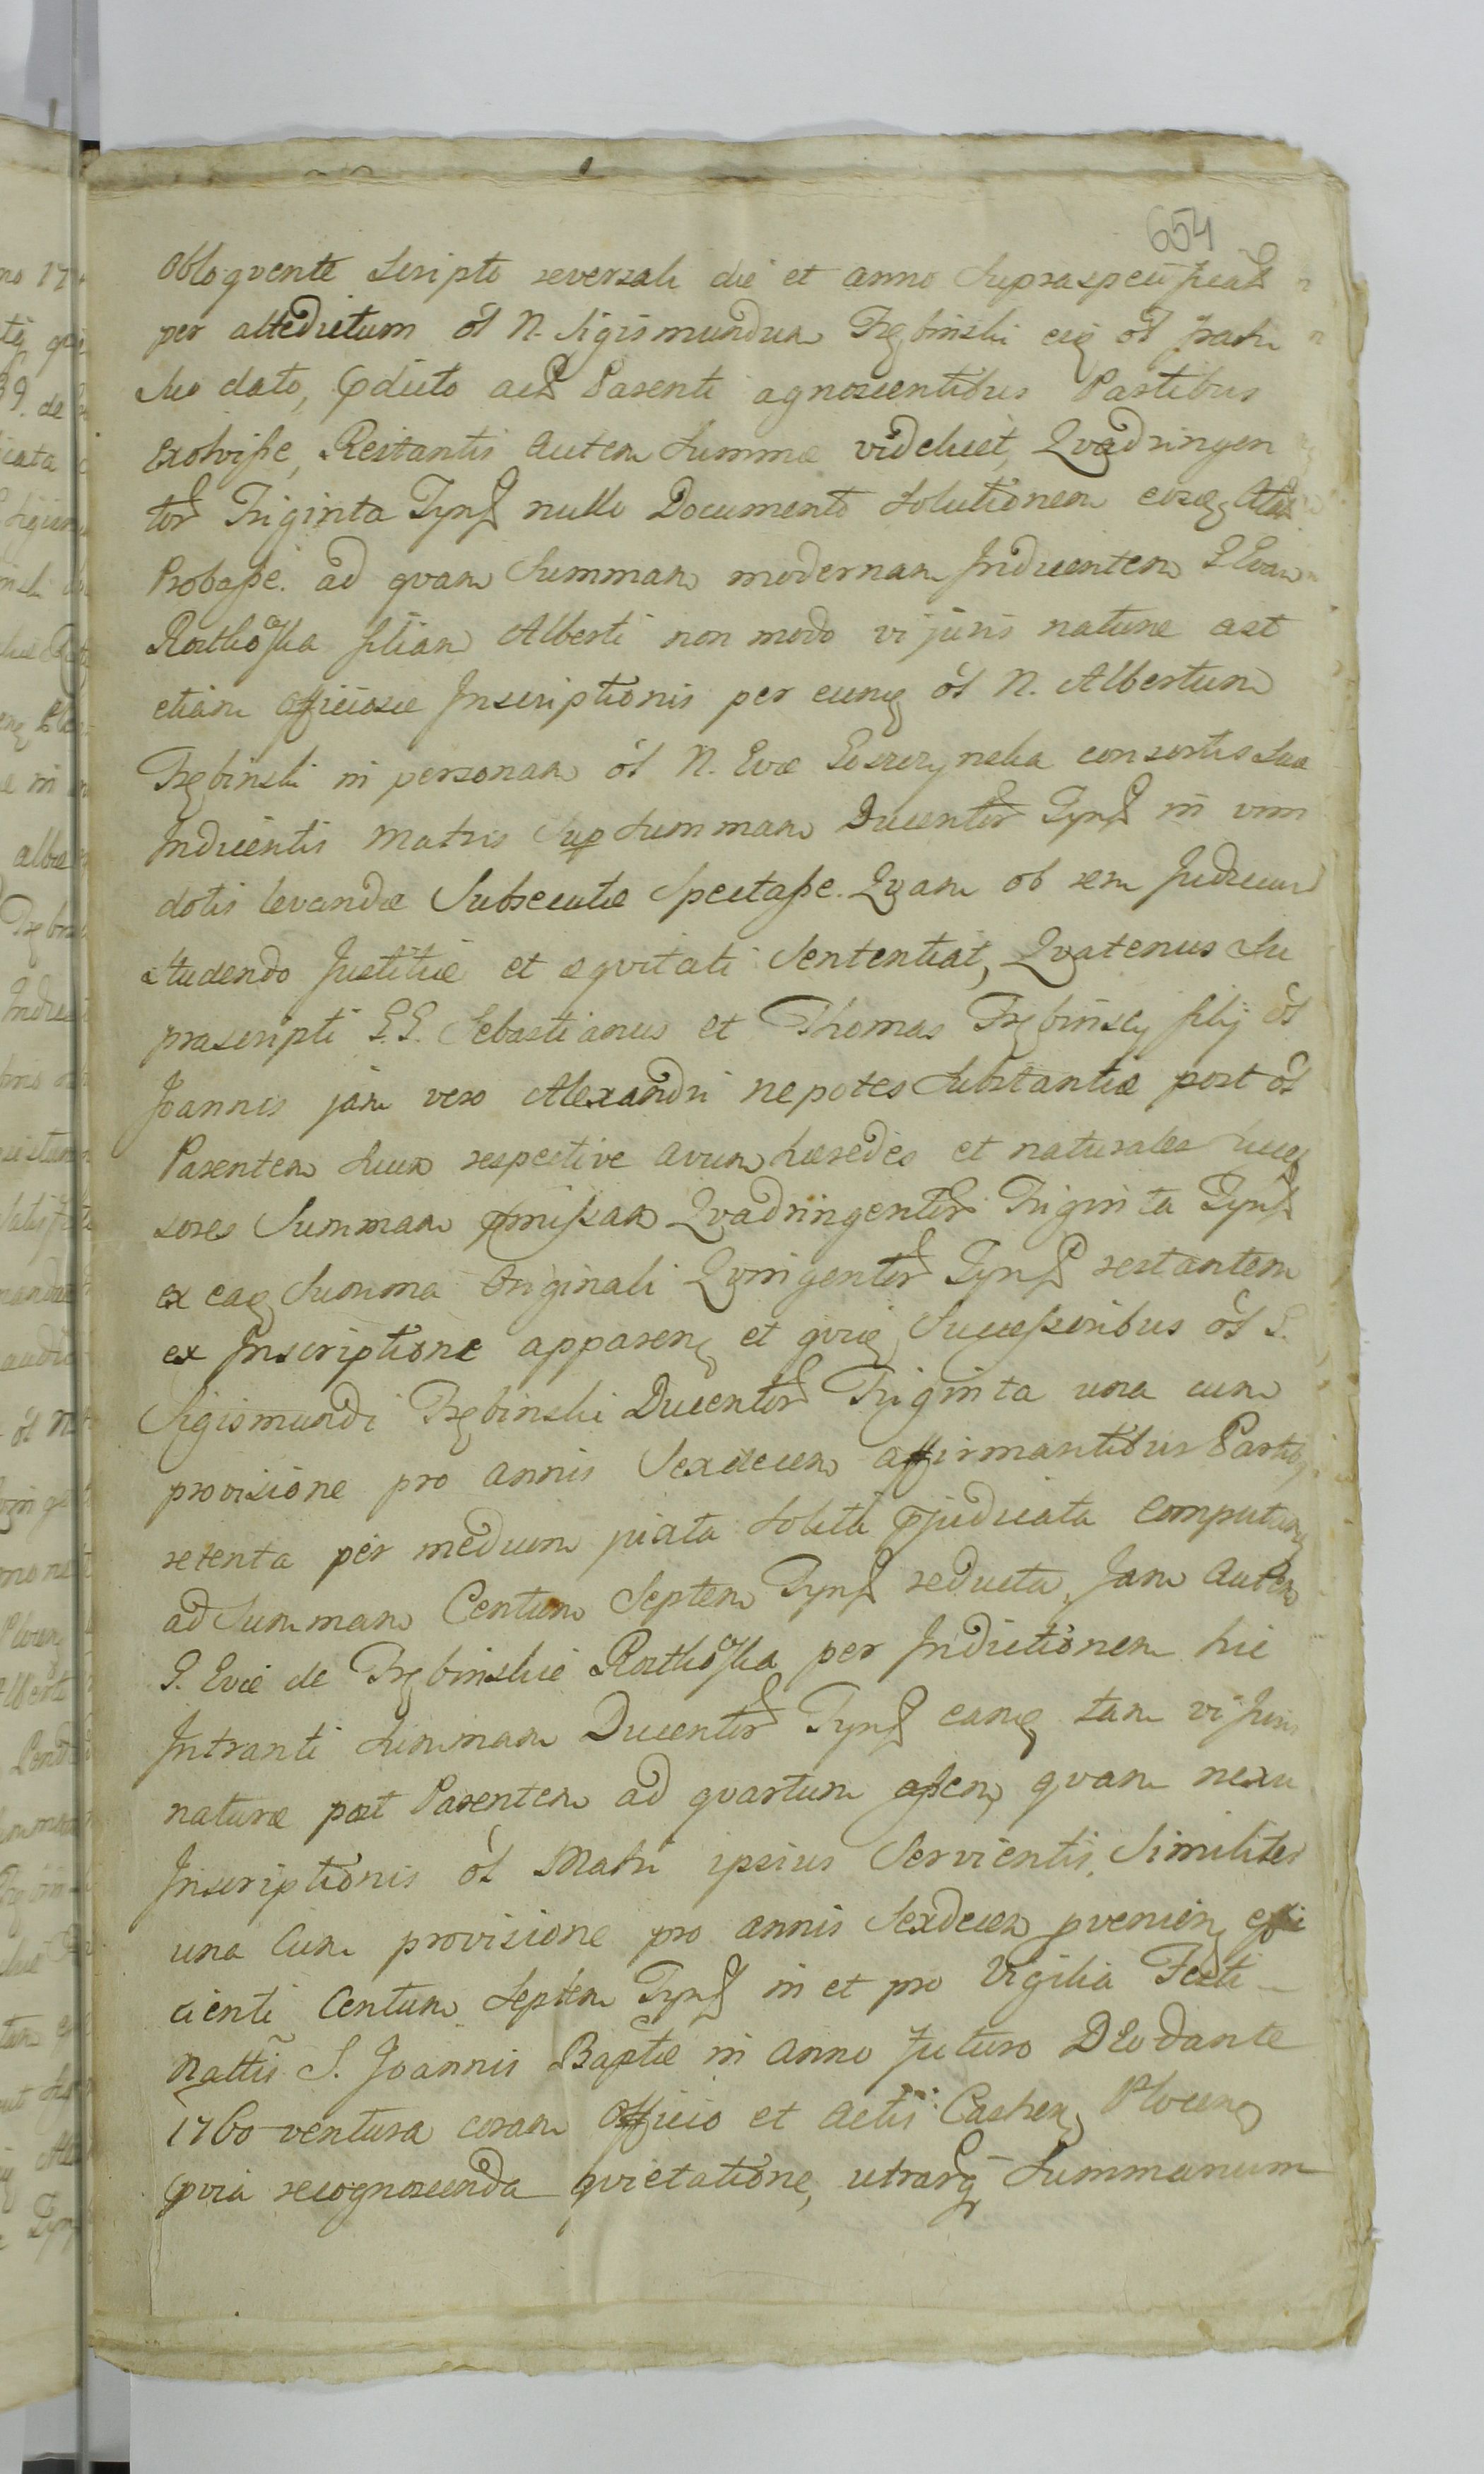 654
obloquente Scripto reversali die et anno Supraspecificat
per altedictum ol N. Sigismundum Trębinski eiq ol Fratri
suo dato, Pdicto Parenti agnoscentibus Partibus
exolviße, Restantis autem Summæ videlicet, Qvadringen
tor Triginta Tynf nullo Documento Solutionem
Probaße. ad qvam Summam modernam Inducentem G Evam
Rostkowska filiam Alberti non modo vi juris naturæ ast
etiam officiosæ Inscriptionis per eunq ol N. Albertum
Trębinski in personam ol N. Evæ consortis Suæ
Inducentis Matris Sup Summam Ducentor Tynf in vim
dotis levandæ Subsecutæ Spectaße. Qvam ob rem Judicium
studendo Justitiæ et æqvitati Sententiat, Qvatenus Su
prascripti G.G. Sebastianus et Thomas Trębinscy filij ol
Joannis jam vero Alexandri nepotes Substantiæ post ol
Parentem Suum respective avum hæredes et naturales Succes
sores Summam pmißam Qvadringentor Triginta Tynf
ex eaq Summa Originali Qvingentor Tynf restantem
ex Inscriptione apparen et qvæ Sucecßoribus ol G.
Sigismundi Trębinski Ducentor Triginta una cum
provisione pro annis Sexdecem affirmantibus Partibq
retenta per medium juxta Solita pjudicata computan
ad Summam Centum Septem Tynf reducta, Jam autem
G. Evæ de Trębinskie Rostkowska per Inductionem hic
Intranti Summam Ducentor Tynf eanq tam vi Juris
naturæ post Parentem ad qvartum aßen, qvam nexu
Inscriptionis ol Matri ipsius Servientis, Similiter
una Cum provisione pro annis Sexdecem pvenien effi
cienti Centum Septem Tynf in et pro Vigilia Festi
Nattis S. Joannis Baptæ in Anno Futuro DEo dante
1760 ventura coram Officio et Actis Castren Plocen
pvia recognoscenda qvietatione, utrarq Summarum